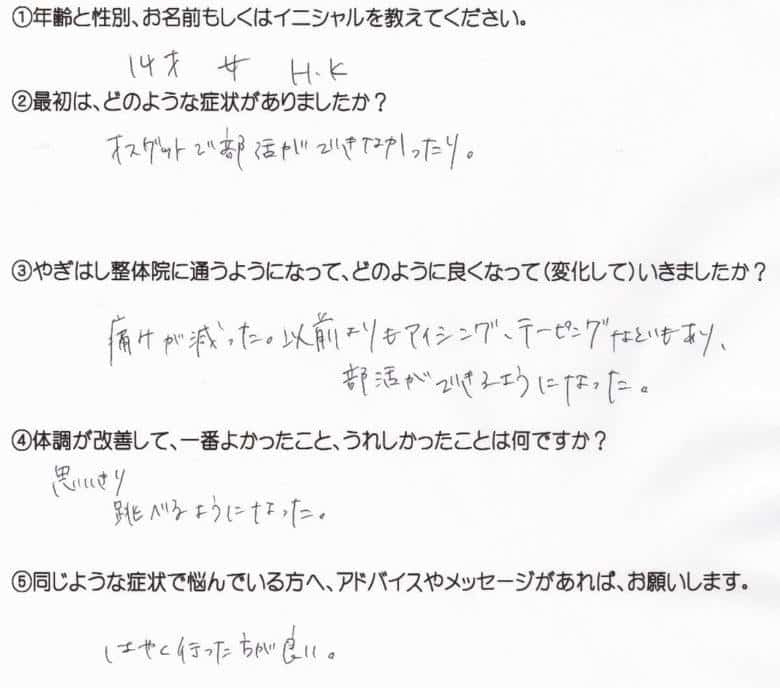 ①年齢と性別、お名前もしくはイニシャルを教えてください。
14才 女 H.K
②最初は、どのような症状がありましたか？
オスグットで部活ができなかったり。
③やぎはし整体院に通うようになって、どのように良くなって（変化して）いきましたか？
痛みが減った。以前よりもアイシング、テーピングなどもあり、
部活ができるようになった。
④体調が改善して、一番よかったこと、うれしかったことは何ですか？
思いきり
跳べるようになった。
⑤同じような症状で悩んでいる方へ、アドバイスやメッセージがあれば、お願いします。
はやく行った方が良い。